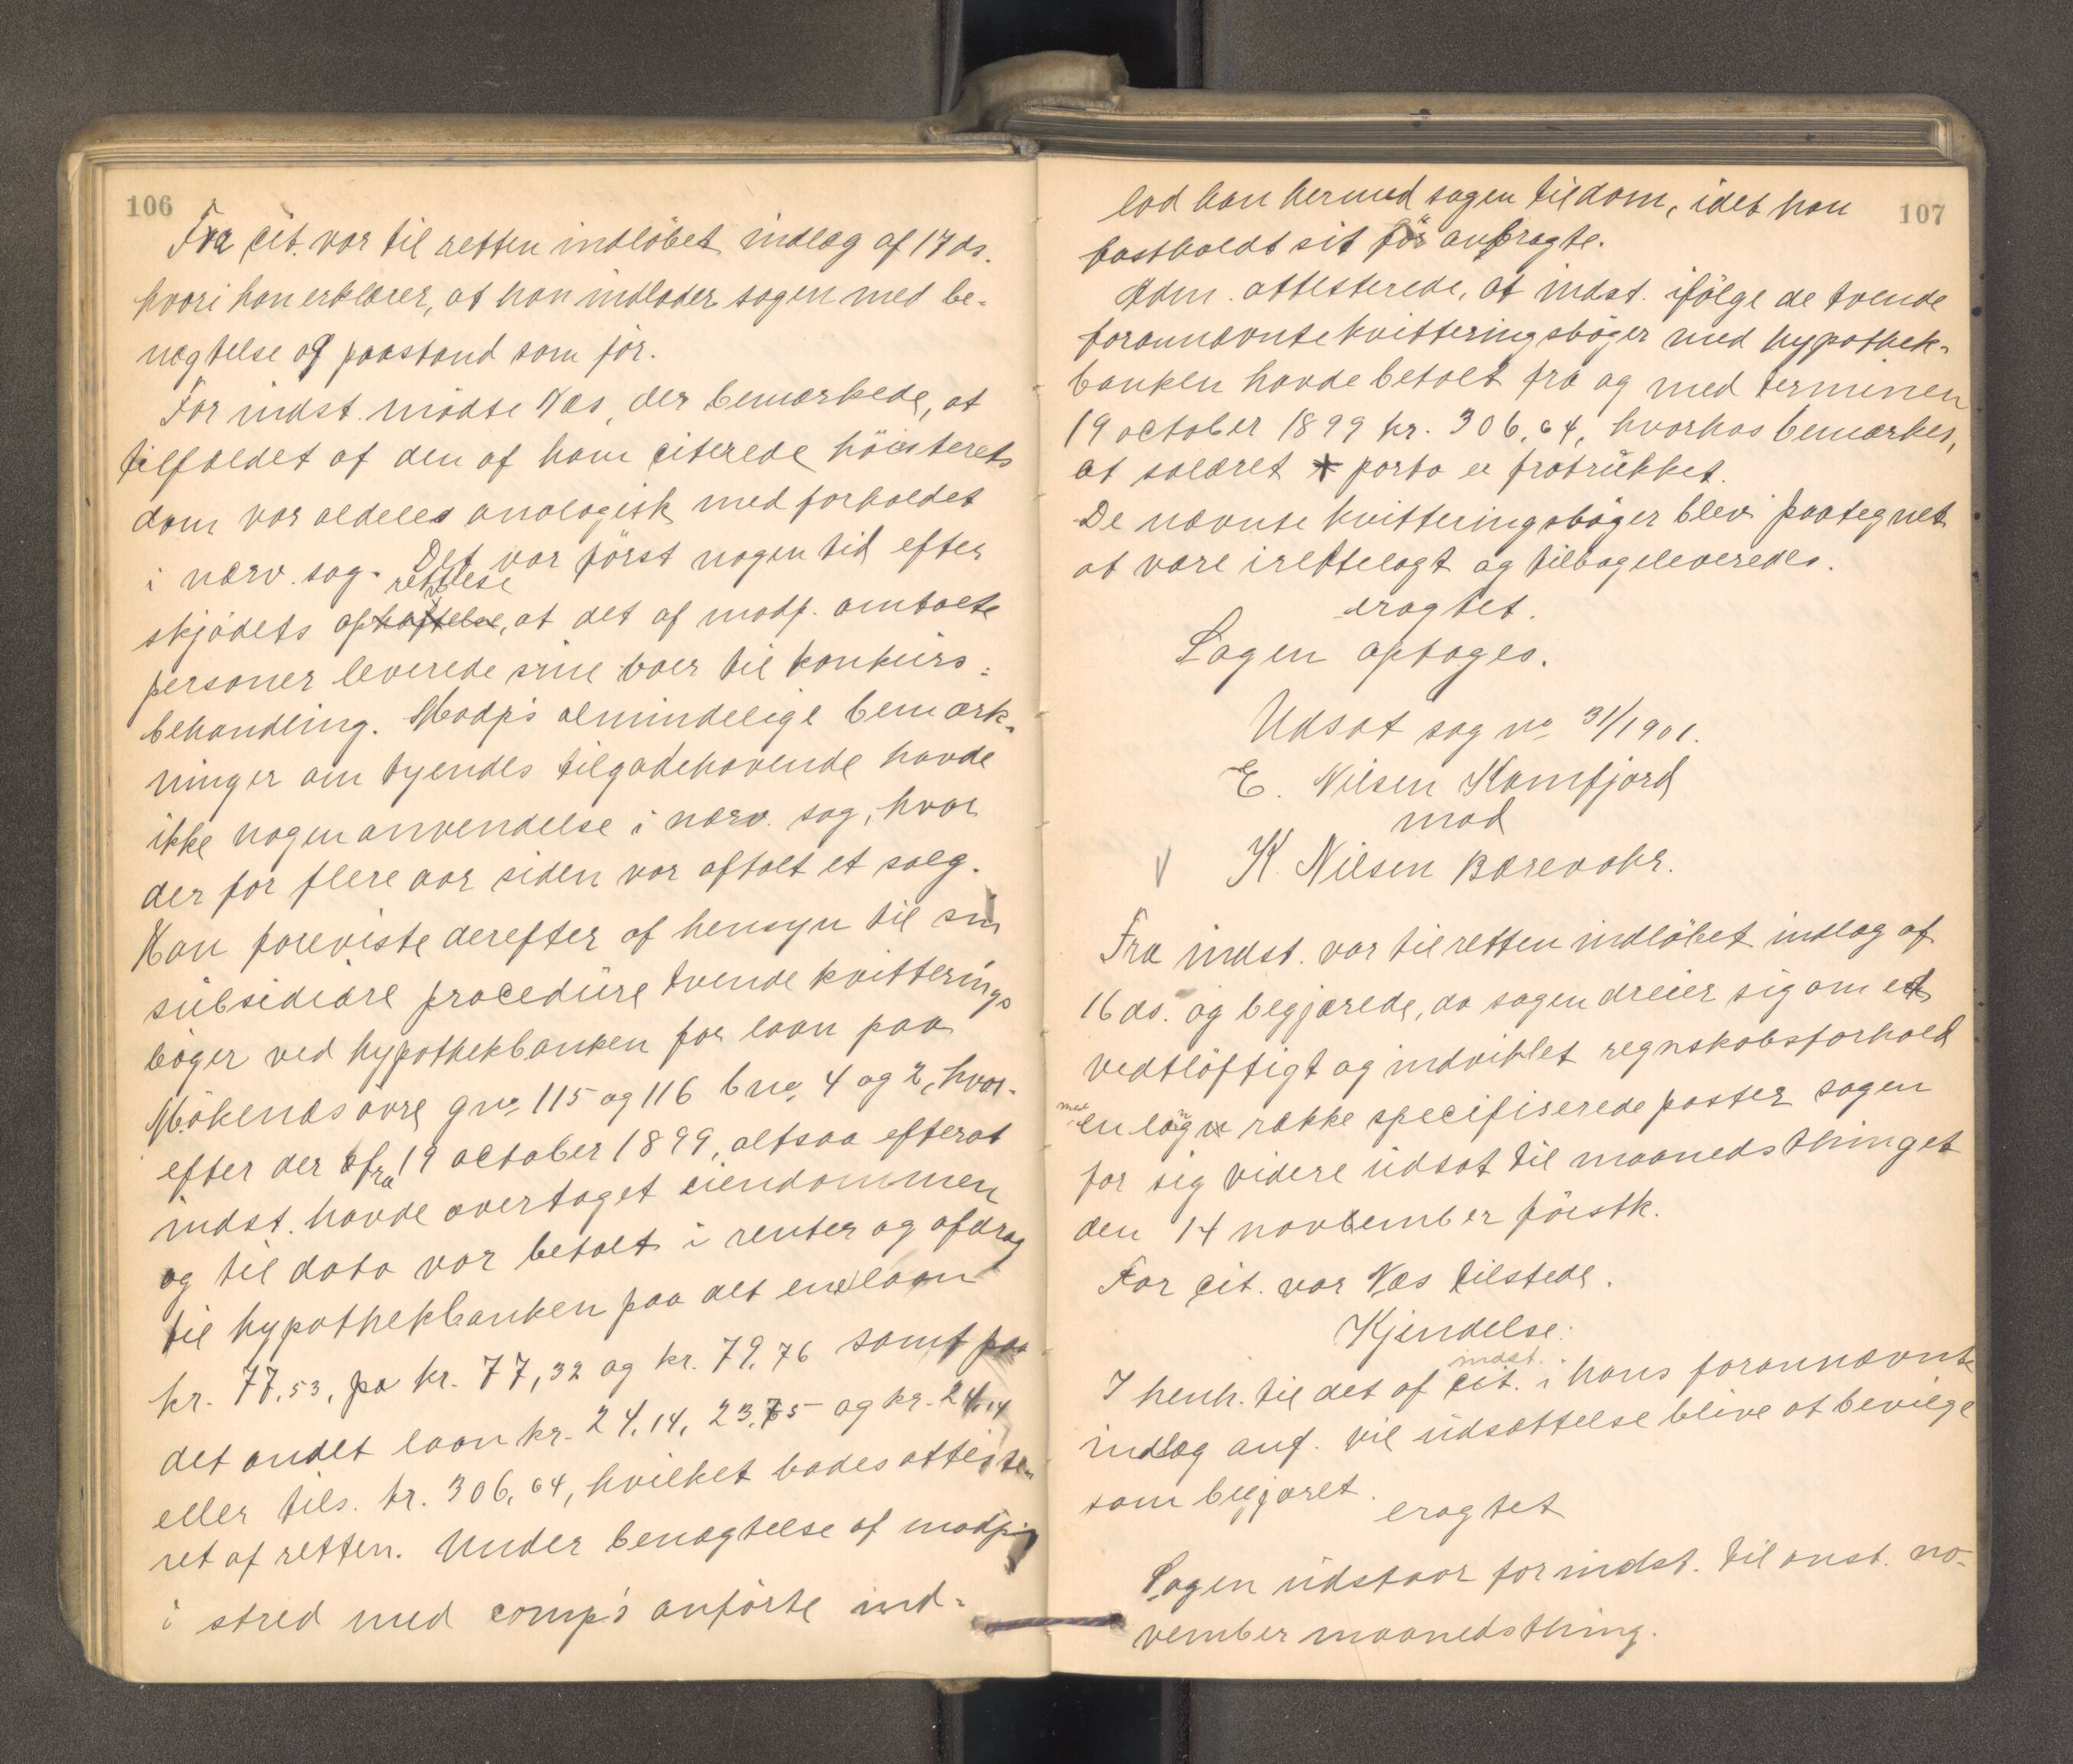 106
Fra cit. var til retten indløbet indlæg af 17 ds.
hvori han erklærer, at han indlader sagen med be-
nægtelse og paastand som før.
For indst. mødte Næs, der bemærkede, at
tilfældet af den af ham citerede høiesterets
dom var aldeles analogisk med forholdet
i nærv. sag. Det var først nogen tid efter
rettelse
skjødets ophæftelse, at det af modp. omtalte
personer leverede sine boer til konkurs=
behandling. Modp's almindelige bemærk-
ninger om tyendes tilgodehavende havde
ikke nogen anvendelse i nærv. sag, hvor
der for flere aar siden var aftalt et salg.
Han foreviste derefter af hensyn til sin
subsidiære procedüre tvende kvitterings
bøger ved hypothekbanken for laan paa
Møkenæs øvre gno. 115 og 116 bno. 4 og 2, hvor-
efter der fra 19 october 1899, altsaa efterat
indst. havde overtaget eiendommen
og til dato var betalt i renter og afdrag
til hypothekbanken paa det ene laan
kr. 77,53, pa kr. 77,32 og kr. 79,76 samt paa
det andet laan kr. 24,14, 23,75 og kr. 24,14
eller tils. kr. 306,64, hvilket bades atteste-
ret af retten. Under benægtelse af modp's
i stred med comp's anførte ind=
107
lod han hermed sagen til dom, idet han
fastholdt sit før anbragte.
Adm. attesterede, at indst. ifølge de tvende
forannævnte kvitteringsbøger med hypothek-
banken havde betalt fra og med terminen
19 october 1899 kr. 306,64, hvorhos bemærkes,
at salæret + porto er fratrükket.
De nævnte kvitteringsbøger blev paategnet
at være irettelagt og tilbageleveredes.
eragtet.
Sagen optages.
Udsat sag no. 31/1901.
E. Nilsen Kamfjord
mod
K. Nilsen Bærevahr.
Fra indst. var til retten indløbet indlæg af
16 ds. og begjærede, da sagen dreier sig om et
vedtløftigt og indviklet regnskabsforhold
med
en lang række specifiserede poster sagen
for sig videre üdsat til maanedsthinget
den 14 november førstk.
For cit. var Næs tilstede.
Kjendelse:
indst.
I henh. til det af cit. i hans forannævnte
indlæg anf. vil üdsættelse blive at bevilge
som begjæret.
eragtet
Sagen üdstaar for indst. til anst. no-
vember maanedsthing.